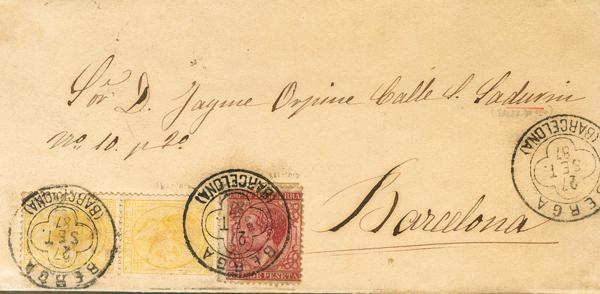 Sor. D. Jayme Orpine Calle S. Sadurni
No. 10. p 2o
Barcelona
BERGA
27
SET.
87
(BARCELONA)
BERGA
27
SET.
87
(BARCELONA)
BERGA
27
SET.
87
(BARCELONA)
DE PESETA